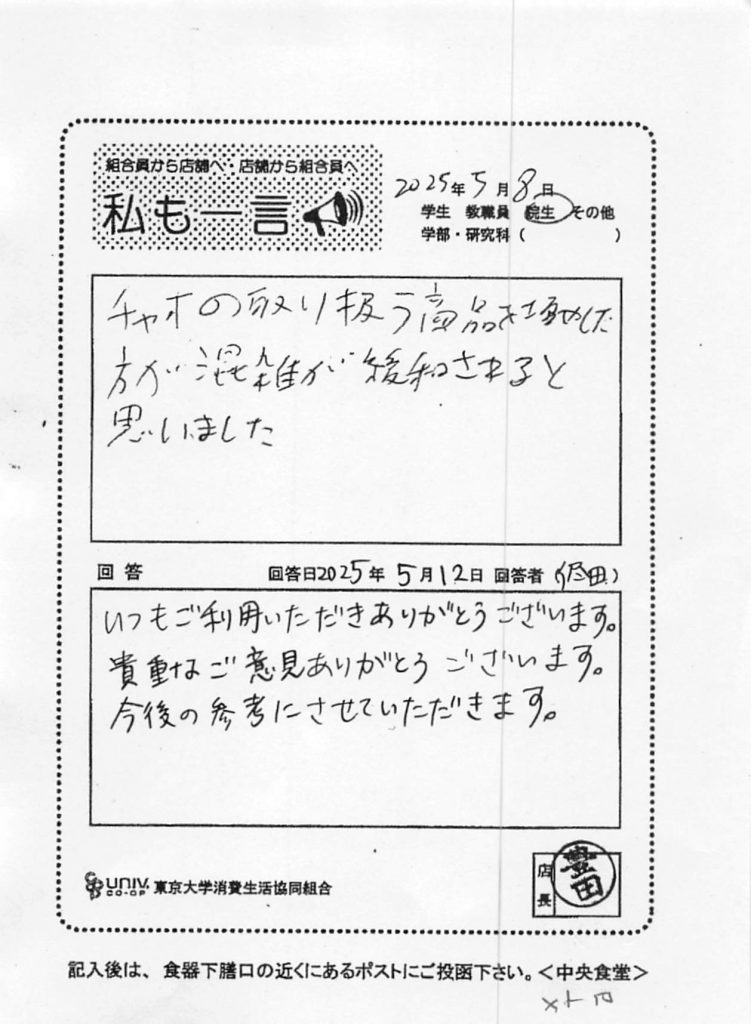 組合員から店舗へ・店舗から組合員へ
私も一言
2025年5月8日
学生 教職員 院生 その他
学部・研究科( )
チャオの取り扱う商品を増やした
方が混雑が緩和されると
思いました
回答 回答日2025年5月12日 回答者( 田)
いつもご利用いただきありがとうございます。
貴重なご意見ありがとうございます。
今後の参考にさせていただきます。
UNIV.
CO-OP
東京大学消費生活協同組合
店長
豊田
記入後は、食器下膳口の近くにあるポストにご投函下さい。<中央食堂>